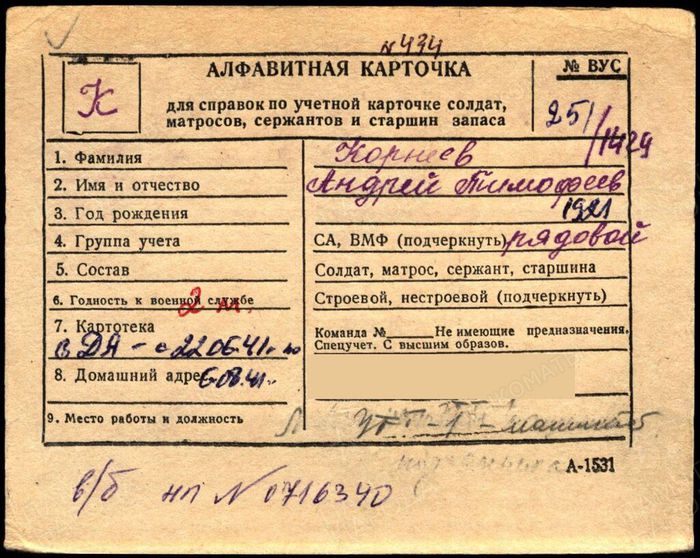 N 434
К
АЛФАВИТНАЯ КАРТОЧКА
для справок по учетной карточке солдат,
матросов, сержантов и старшин запаса
№ ВУС
251/1429
1. Фамилия Корнеев
2. Имя и отчество Андрей Тимофеев
3. Год рождения 1921
4. Группа учета СА, ВМФ (подчеркнуть) рядовой
5. Состав Солдат, матрос, сержант, старшина
6. Годность к военной службе Строевой, нестроевой (подчеркнуть)
7. Картотека Команда №      Не имеющие предназначения.
Спецучет. С высшим образов.
в ДЯ - с 22 06.41 по
8. Домашний адрес 6 08.41
9. Место работы и должность УТТ-1 -
А-1531
в/б нп N 0716340